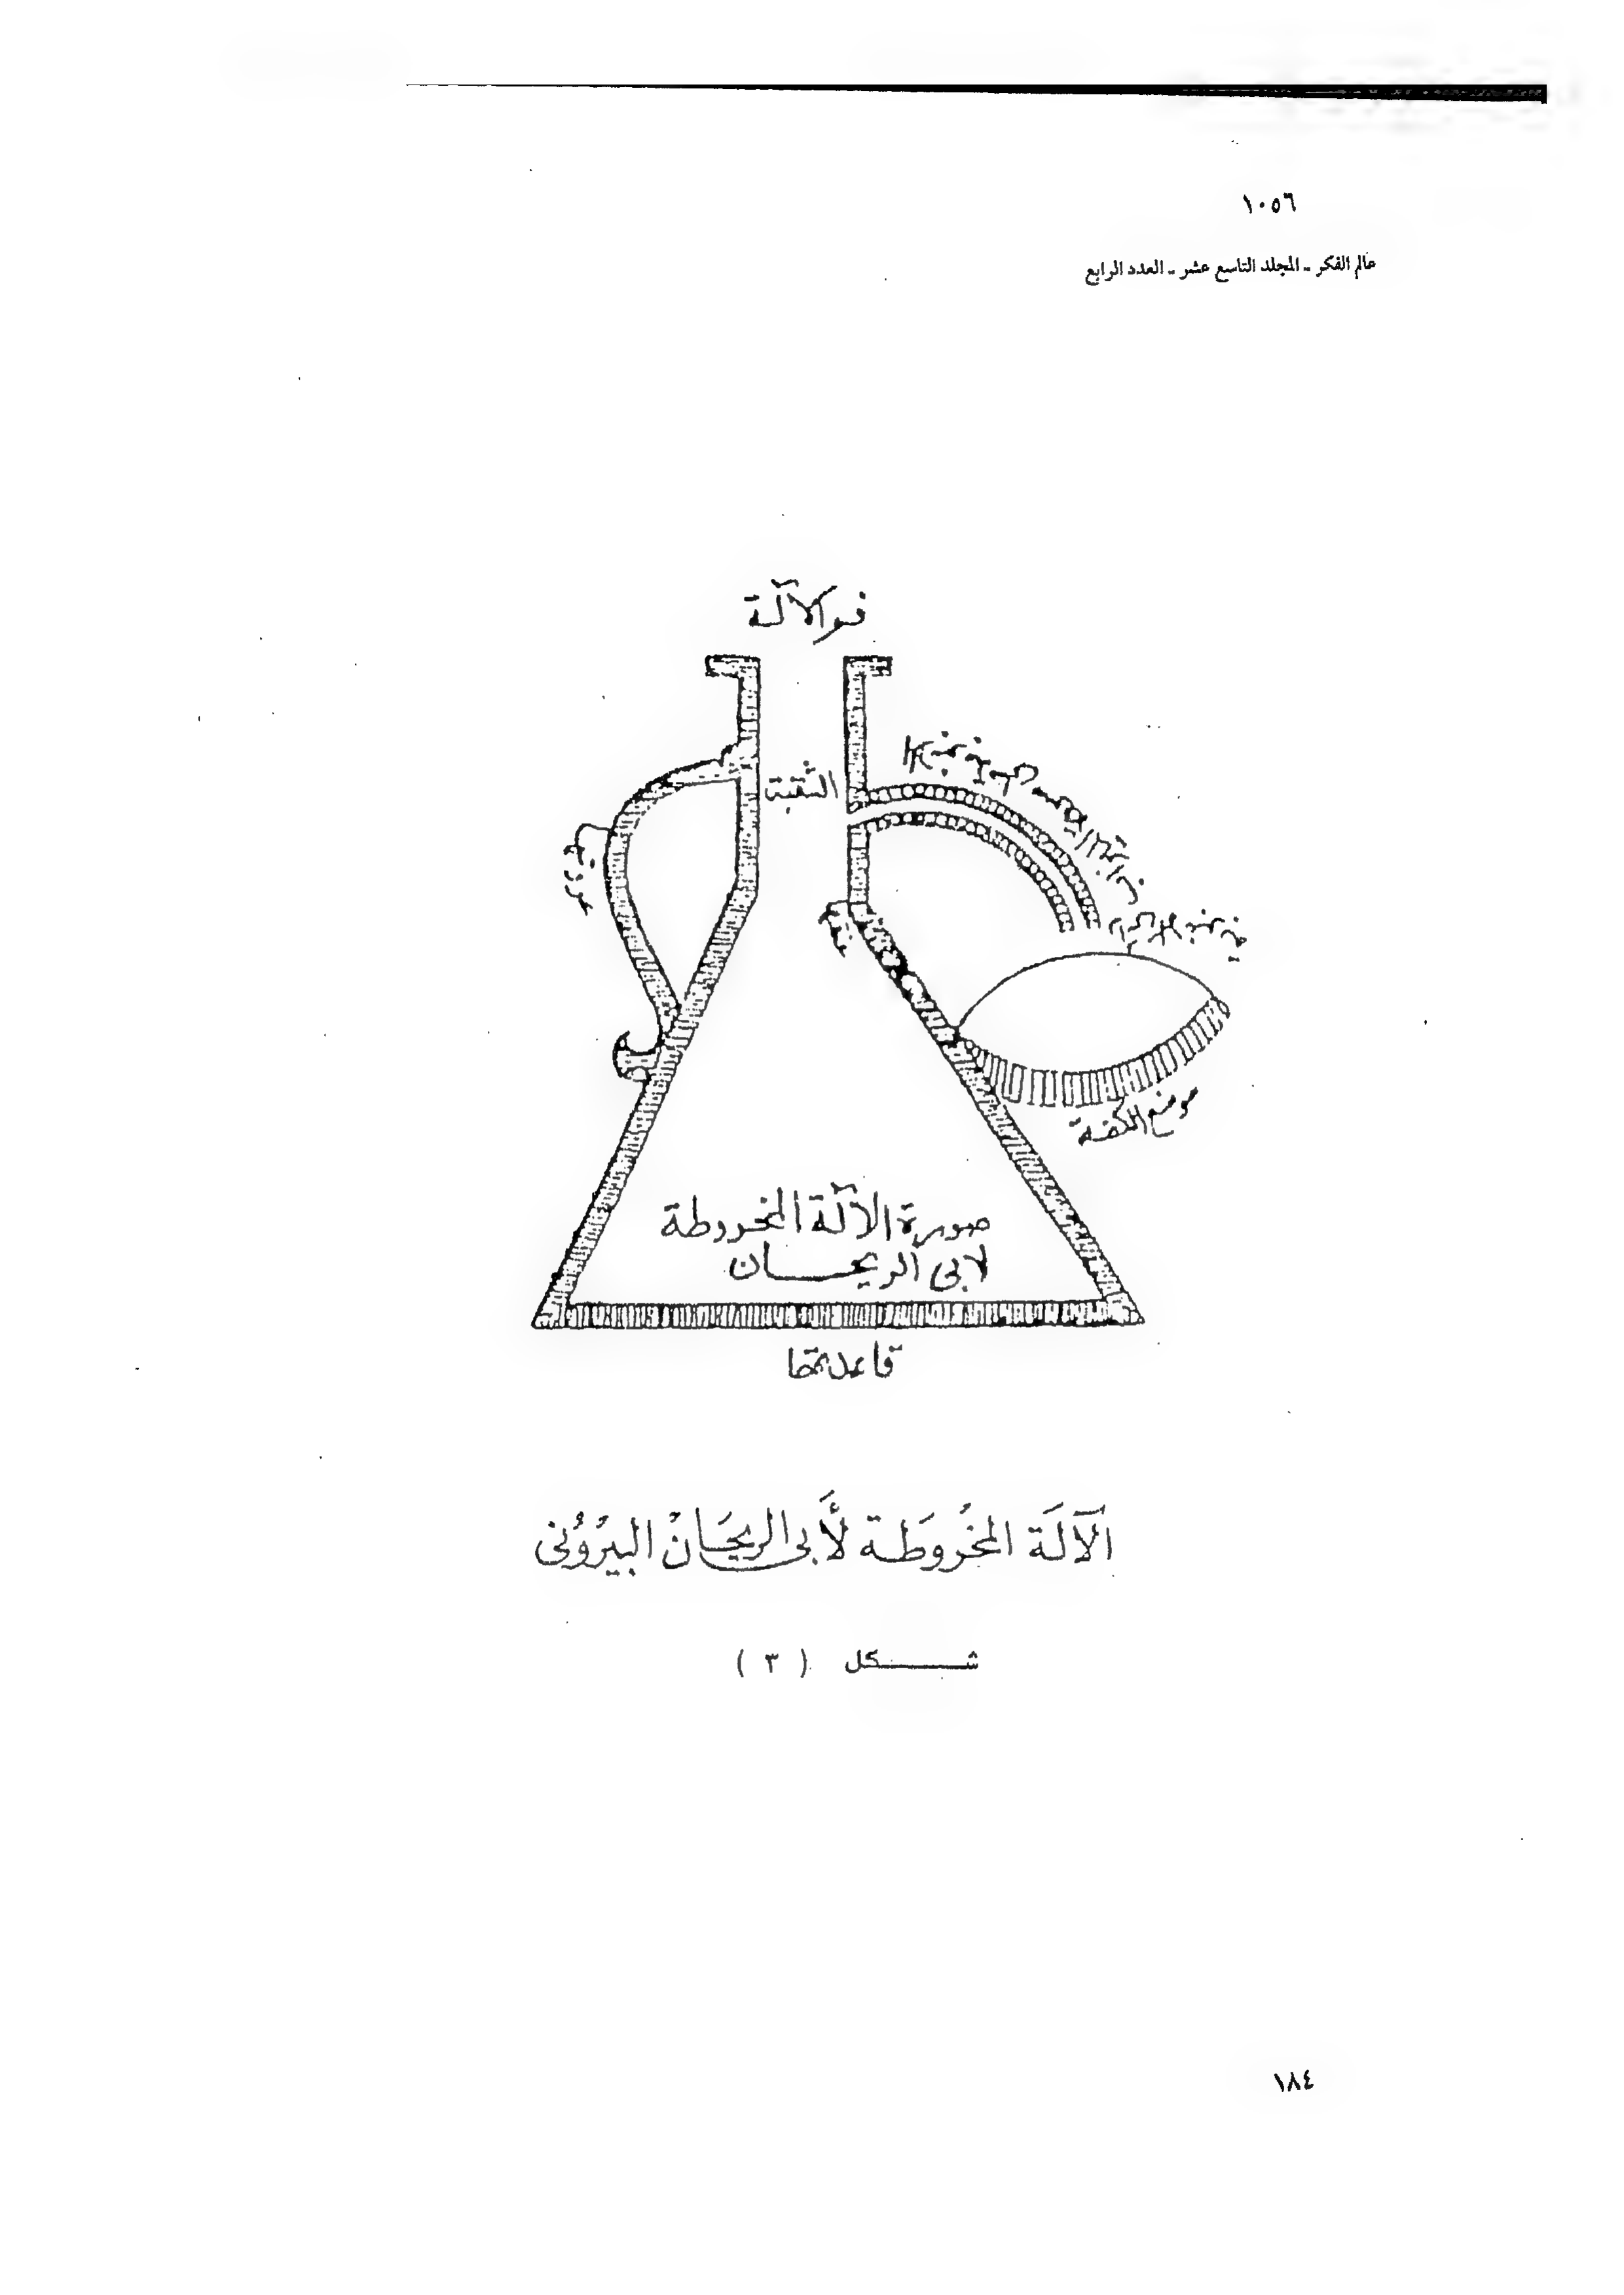 ١٠٥٦
عالم الفكر - المجلد التاسع عشر - العدد الرابع
فم الآلة
الثقبة
موضع الكفة
صورة الآلة المخروطة
لابي الريحان
قاعدتها
الآلَة المخرُوطَة لأَبى الريحَانْ البيرُونى
شكل ( ٣ )
١٨٤